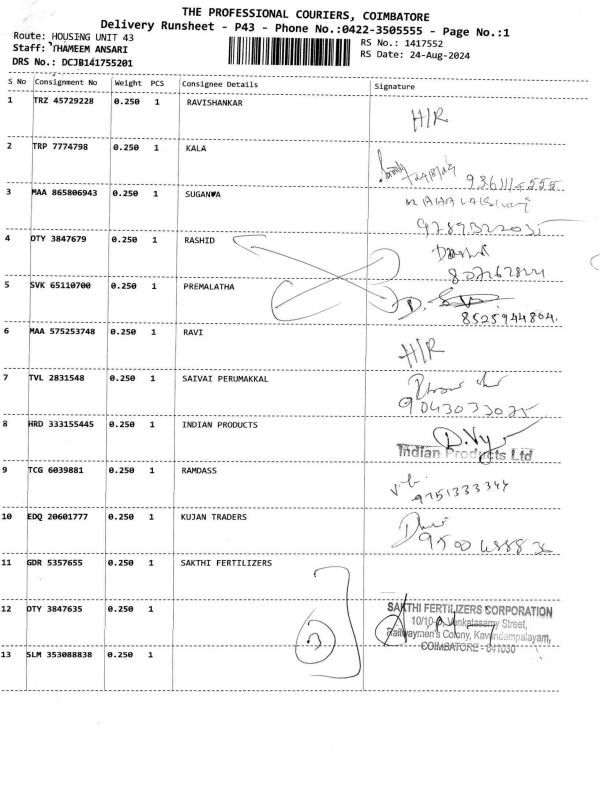 THE PROFESSIONAL COURIERS, COIMBATORE
Delivery Runsheet - P43 - Phone No.:0422-3505555 - Page No.:1
Route: HOUSING UNIT 43
Staff: THAMEEM ANSARI
DRS No.: DCJB141755201
RS No.: 1417552
RS Date: 24-Aug-2024
S No Consignment No Weight PCS Consignee Details Signature
1 TRZ 45729228 0.250 1 RAVISHANKAR H/R
2 TRP 7774798 0.250 1 KALA
3 MAA 865806943 0.250 1 SUGANYA
4 OTY 3847679 0.250 1 RASHID
5 SVK 65110700 0.250 1 PREMALATHA
8525944804.
6 MAA 575253748 0.250 1 RAVI H/R
7 TVL 2831548 0.250 1 SAIVAI PERUMAKKAL
9043033025
8 HRD 333155445 0.250 1 INDIAN PRODUCTS
Indian Products Ltd
9 TCG 6039881 0.250 1 RAMDASS
9751333344
10 EDQ 20601777 0.250 1 KUJAN TRADERS
11 GDR 5357655 0.250 1 SAKTHI FERTILIZERS
12 OTY 3847635 0.250 1
SAKTHI FERTILIZERS CORPORATION
Venkatasamy Street,
Railwaymen's Colony, Kavundampalayam,
COIMBATORE - 641030
13 SLM 353088838 0.250 1